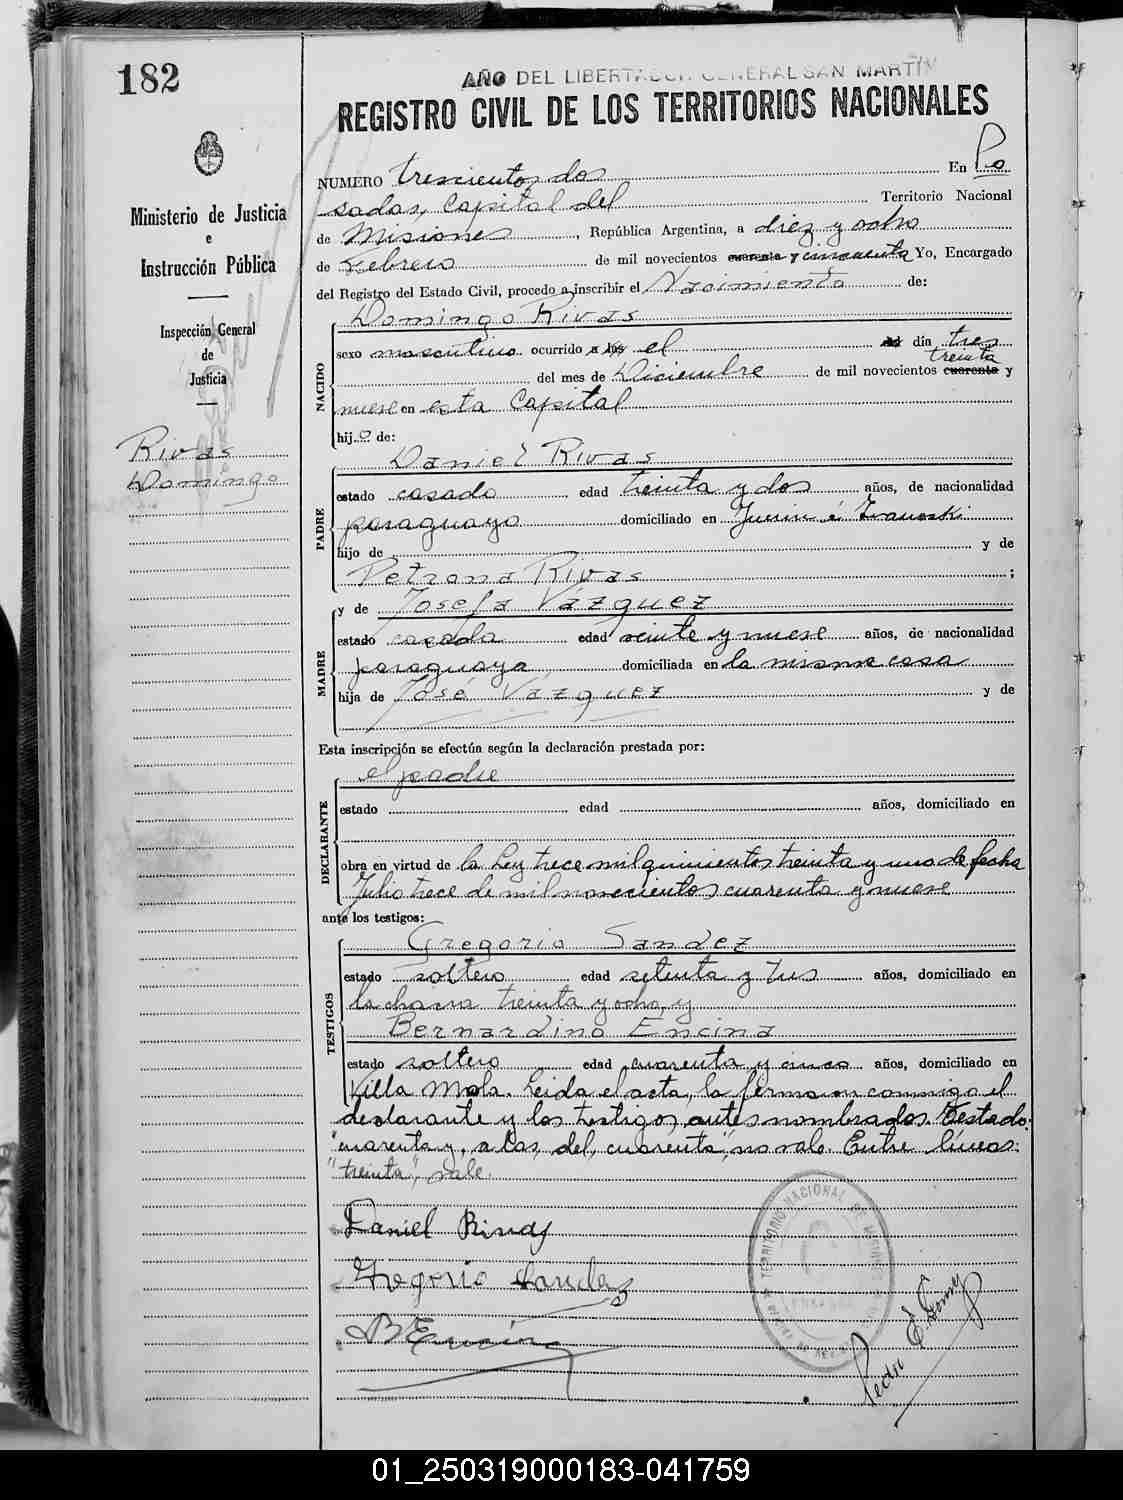 182
AÑO DEL LIBERTADOR GENERAL SAN MARTIN
REGISTRO CIVIL DE LOS TERRITORIOS NACIONALES
Ministerio de Justicia
e
Instrucción Pública
Inspección General
de
Justicia
Rivas
Domingo
NUMERO trescientos dos En Po
sadas, Capital del Territorio Nacional
de Misiones, República Argentina, a diez y ocho
de Febrero de mil novecientos cuarenta y cincuenta Yo, Encargado
del Registro del Estado Civil, procedo a inscribir el Nacimiento de:
NACIDO
Domingo Rivas
sexo masculino ocurrido a las el del día tres
treinta
del mes de Diciembre de mil novecientos cuarenta y
nueve en esta Capital
hijo de:
PADRE
Daniel Rivas
estado casado edad treinta y dos años, de nacionalidad
paraguayo domiciliado en Junin é
hijo de y de
Petrona Rivas;
MADRE
y de Josefa Vázquez
estado casada edad veinte y nueve años, de nacionalidad
paraguaya domiciliada en la misma casa
hija de José Vázquez y de
Esta inscripción se efectúa según la declaración prestada por:
DECLARANTE
el padre
estado edad años, domiciliado en
obra en virtud de la Ley trece mil quinientos treinta y uno de fecha
Julio trece de mil novecientos cuarenta y nueve
ante los testigos:
TESTIGOS
Gregorio Sandez
estado soltero edad setenta y tres años, domiciliado en
la chacra treinta y ocho, y
Bernardino Encina
estado soltero edad cuarenta y cinco años, domiciliado en
Villa Mola. Leida el acta, la firmaron conmigo el
declarante y los testigos antes nombrados. Testado:
"cuarenta y, a las, del, cuarenta", no vale. Entre líneas:
"treinta", vale.
Daniel Rivas
Gregorio Sandez
B Encina
TERRITORIO NACIONAL DE MISIONES
Pedro E.
01_250319000183-041759